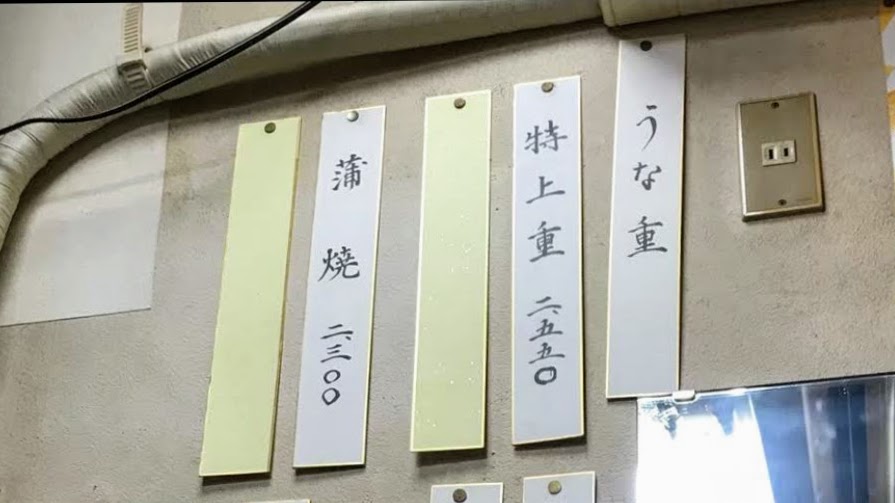 うな重
特上重 二、五五〇
蒲焼 二、三〇〇